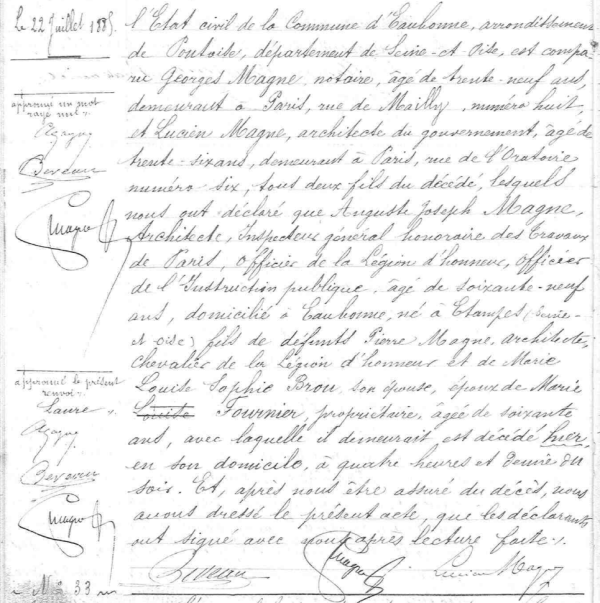 Le 22 Juillet 1885.
l'Etat civil de la Commune d'Eaubonne, arrondissement
de Pontoise, département de Seine-et-Oise, est compa-
ru Georges Magne, notaire, âgé de trente-neuf ans,
demeurant à Paris, rue de Mailly, numéro huit
et Lucien Magne, architecte du gouvernement, âgé de
trente-six ans, demeurant à Paris, rue de l'Oratoire
numéro six, tous deux fils du décédé, lesquels
nous ont déclaré que Auguste Joseph Magne,
Architecte, Inspecteur général honoraire des Travaux
de Paris, Officier de la Légion d'honneur, officier
de l'Instruction publique, âgé de soixante-neuf
ans, domicilié à Eaubonne, né à Etampes (Seine-
et Oise) fils de défunts Pierre Magne, architecte,
Chevalier de la Légion d'honneur et de Marie
Louise Sophie Brou, son épouse, époux de Marie
Louise Fournier, propriétaire, âgée de soixante
ans, avec laquelle il demeurait, est décédé hier,
en son domicile, à quatre heures et demie du
soir. Et, après nous être assuré du décès, nous
avons dressé le présent acte, que les déclarants
ont signé avec nous après lecture faite.
approuvé un mot
rayé nul
Magne
approuvé le présent
renvoi
Laure
Magne
Lucien Magne
N° 33